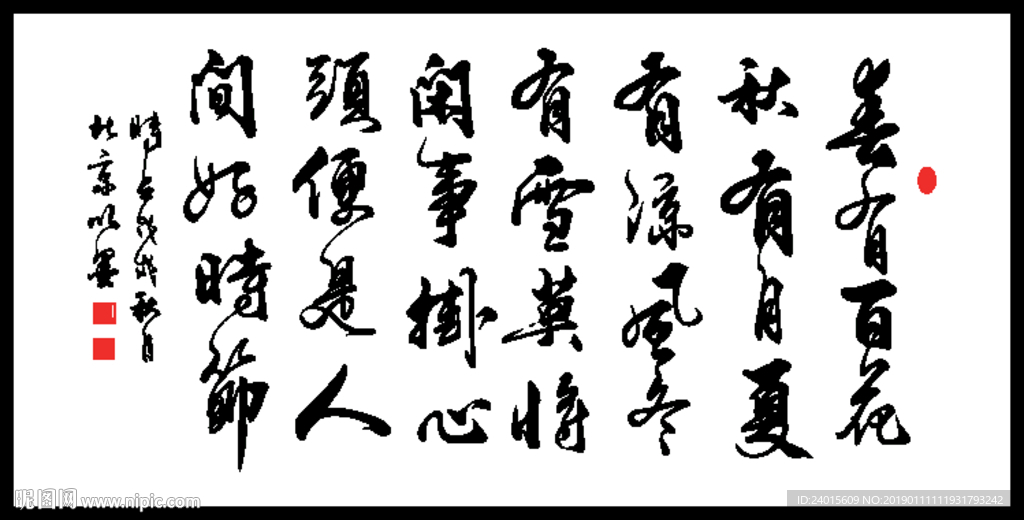 春有百花
秋有月夏
有涼風冬
有雪莫將
閑事掛心
頭便是人
間好時節
時在戊戌秋月
北京以墨
昵图网 www.nipic.com
ID:24015609 NO:20190111111931793242